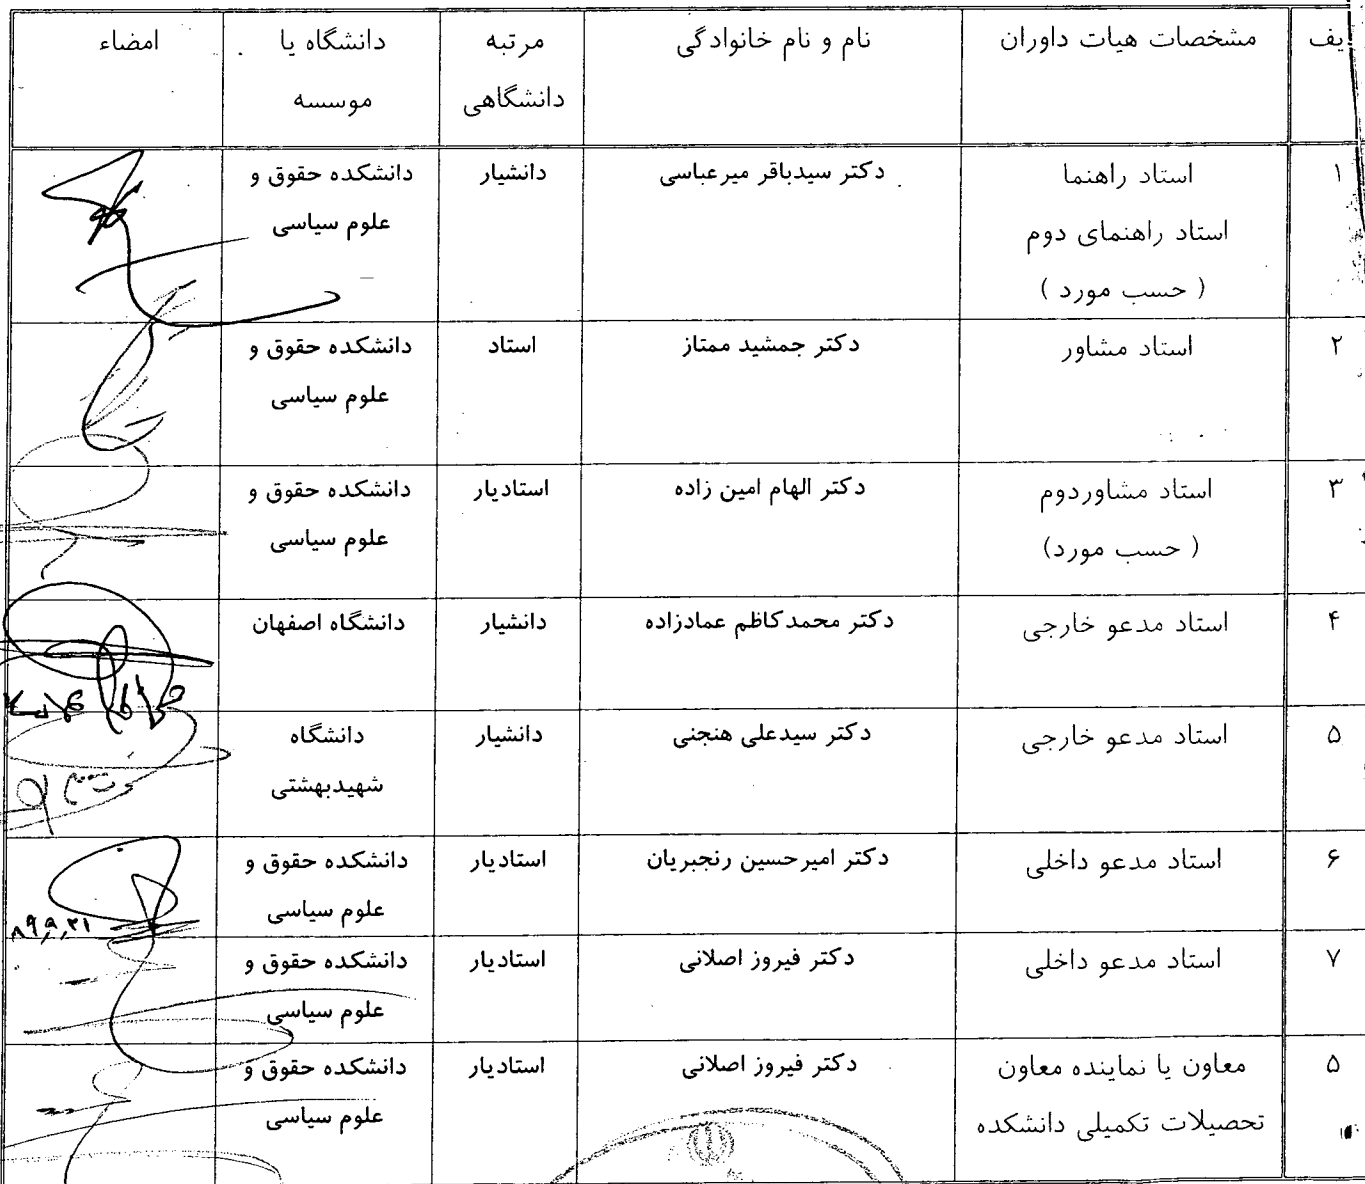 یف مشخصات هیات داوران نام و نام خانوادگی مرتبه دانشگاهی دانشگاه یا موسسه امضاء
۱ استاد راهنما دکتر سیدباقر میرعباسی دانشیار دانشکده حقوق و علوم سیاسی
استاد راهنمای دوم
( حسب مورد )
۲ استاد مشاور دکتر جمشید ممتاز استاد دانشکده حقوق و علوم سیاسی
۳ استاد مشاوردوم دکتر الهام امین زاده استادیار دانشکده حقوق و علوم سیاسی
( حسب مورد)
۴ استاد مدعو خارجی دکتر محمدکاظم عمادزاده دانشیار دانشگاه اصفهان
۵ استاد مدعو خارجی دکتر سیدعلی هنجنی دانشیار دانشگاه شهیدبهشتی
۶ استاد مدعو داخلی دکتر امیرحسین رنجبریان استادیار دانشکده حقوق و علوم سیاسی ۸۹,۹,۲۱
۷ استاد مدعو داخلی دکتر فیروز اصلانی استادیار دانشکده حقوق و علوم سیاسی
۵ معاون یا نماینده معاون دکتر فیروز اصلانی استادیار دانشکده حقوق و علوم سیاسی
تحصیلات تکمیلی دانشکده